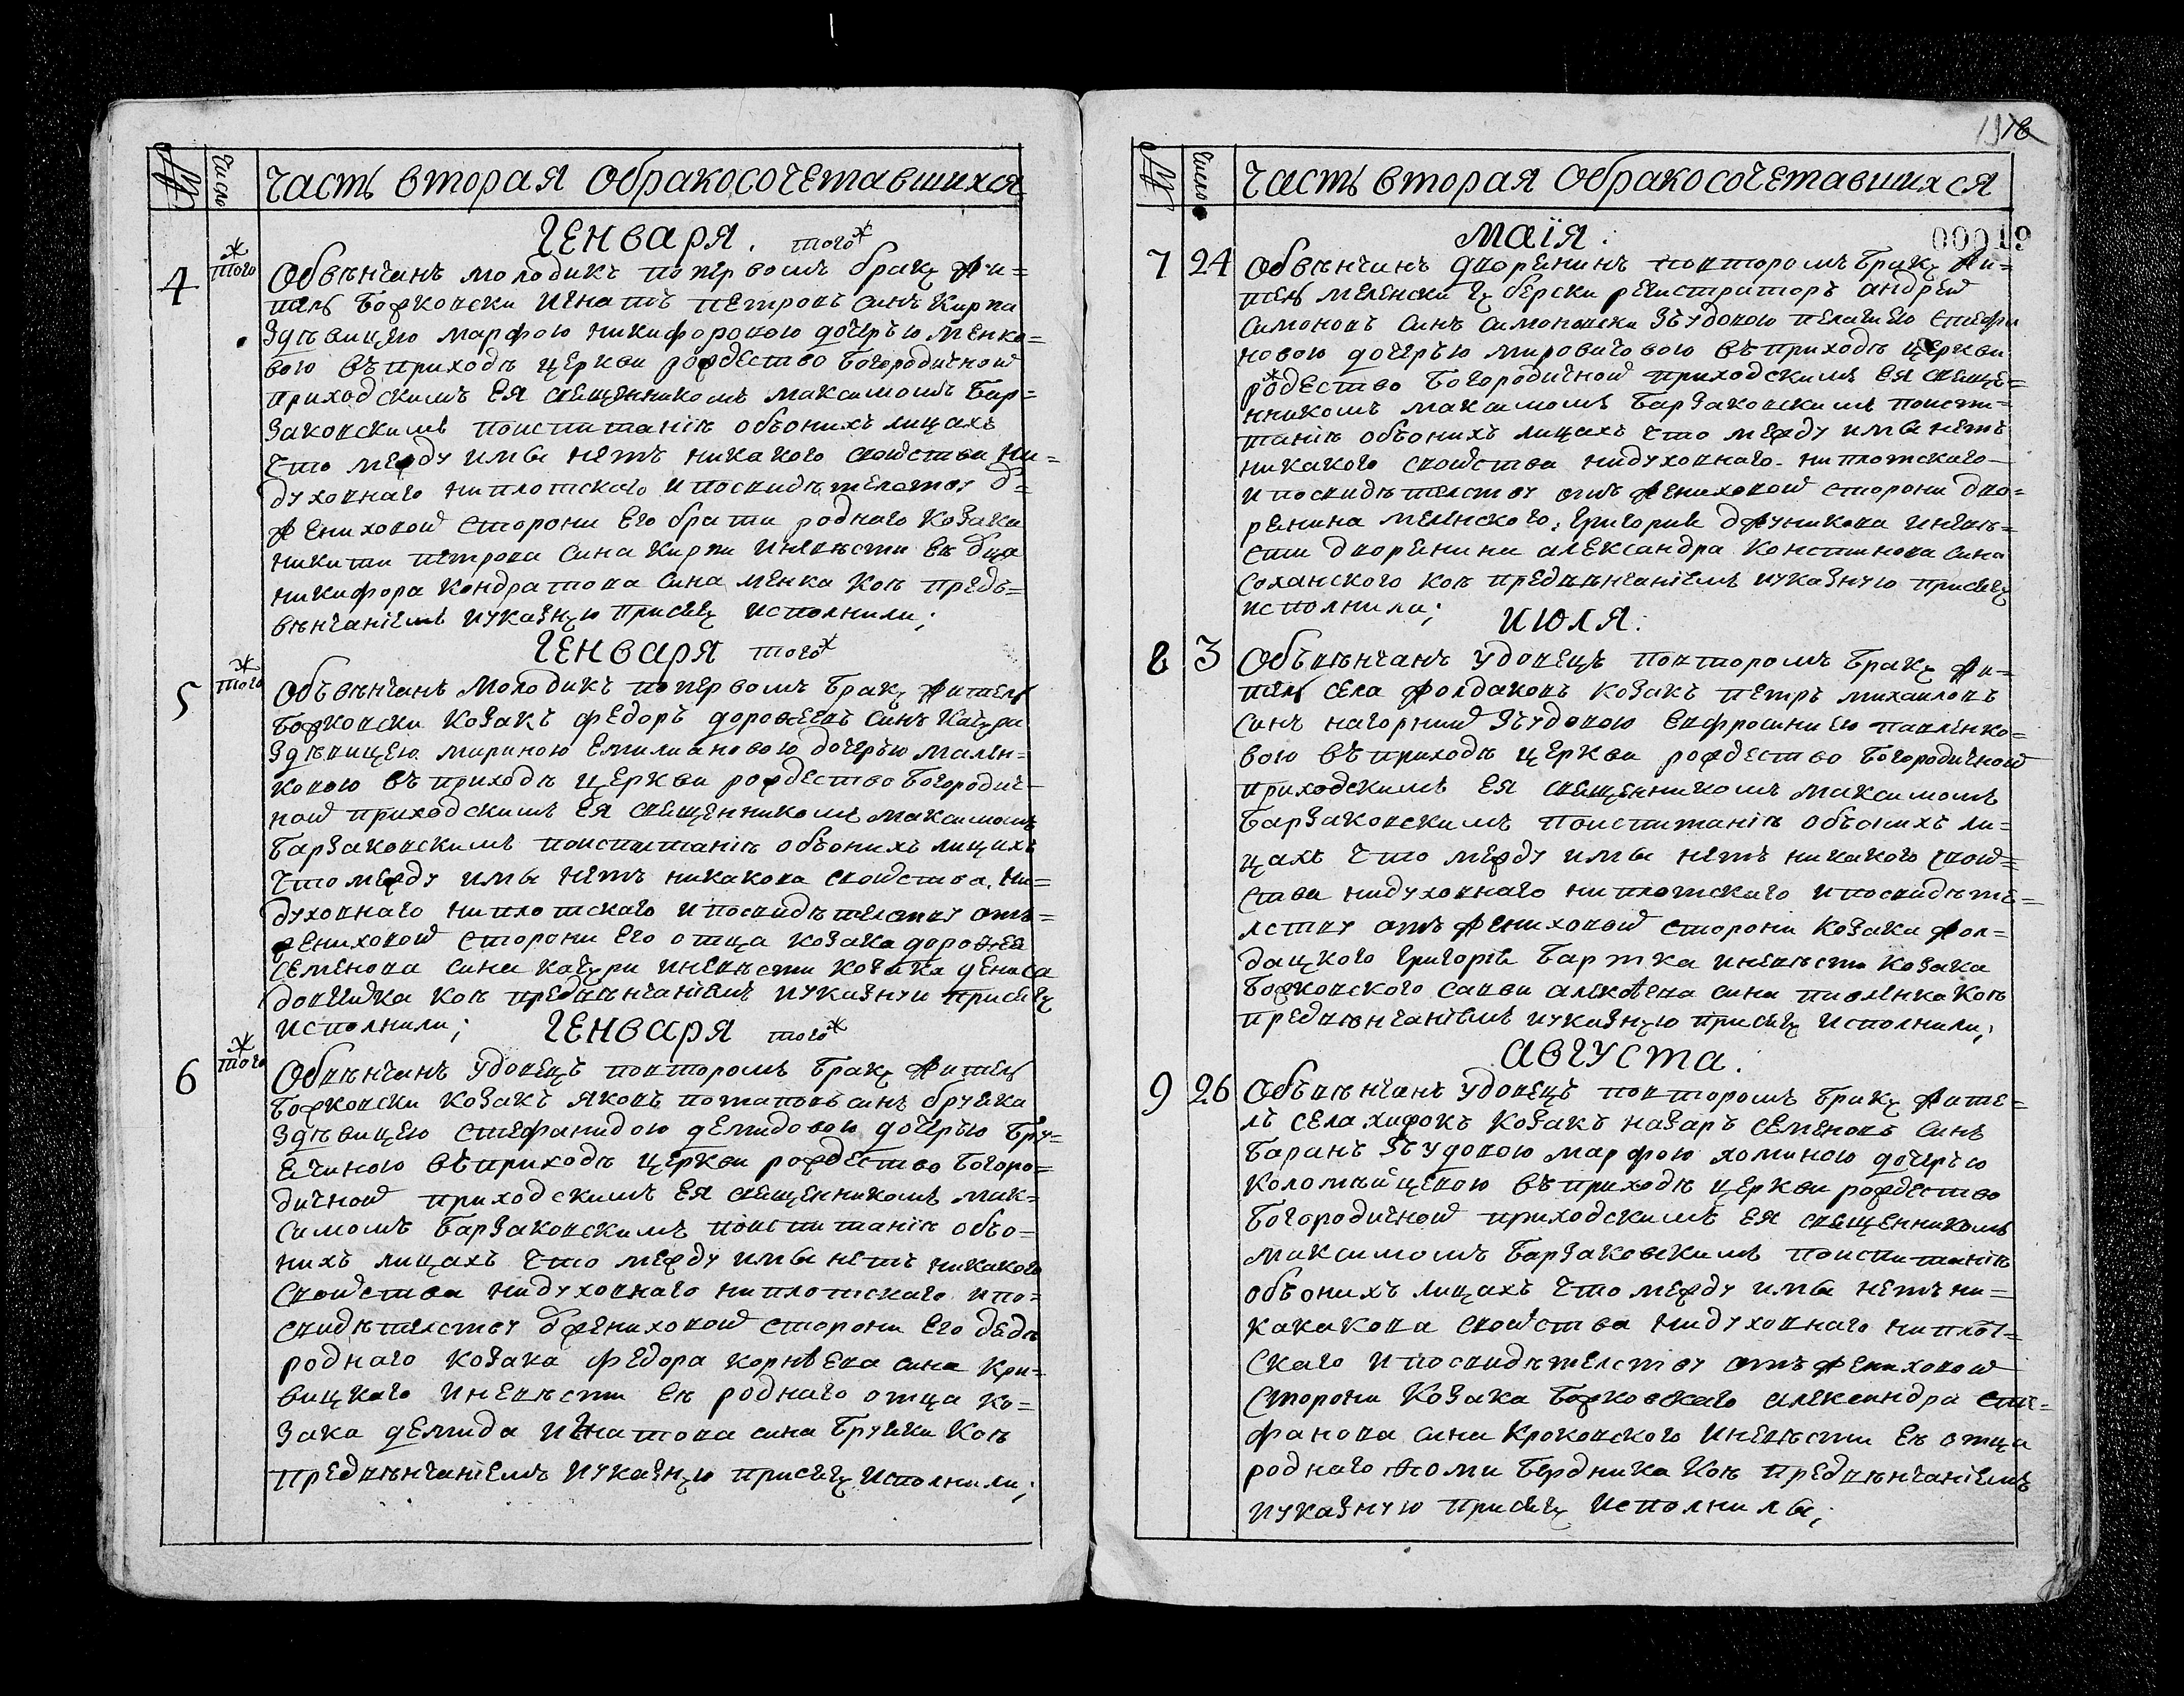 №
Число
Часть вторая обракосочетавшихся
Генваря. того ж
4
того ж
Обвѣнчанъ молодикъ попервомъ браку жи=
тель божковски игнатъ петровъ синъ кирпа
здѣвицею марфою никифоровою дочерью менко=
вою въприходѣ церкви рождество богородичной
приходскимъ ея священникомъ максимомъ бар=
заковскимъ поиспитаніи объонихъ лицахъ
что между имы нетъ никакого свойства ни=
духовнаго ниплотского ипосвидѣтелству о=
жениховой сторони его брата роднаго козака
никити петрова сина кирпи иневѣсти еѣ отца
никифора кондратова сина менка коѣ предъ=
вѣнчаніемъ иуказную присягу исполнили;
Генваря того ж
5
того ж
Объвѣнчанъ молодикъ попервомъ браку житель
божковски козакъ федоръ дорофеевъ синъ качура
здѣвицею мариною емилиановою дочерью мален=
ковою въприходѣ церкви рождество богородич=
ной приходскимъ ея священникомъ максимомъ
барзаковскимъ поиспитаніи объонихъ лицахъ
что между имы нетъ никакова свойства ни=
духовнаго ниплотскаго ипосвидѣтелству отъ=
жениховой сторони его отца козака дорофея
семенова сина качури иневѣсти козака дениса
довгидка коѣ предвѣнчаніемъ иуказную присягу
исполнили; Генваря того ж
6
того ж
Обвѣнчанъ удовецъ повторомъ браку житель
божковски козакъ яковъ потаповъ синъ брушка
здѣвицею стефанидою демидовою дочерью бру=
ечиною въприходѣ церкви рождество богоро=
дичной приходскимъ ея священникомъ мак=
симомъ барзаковскимъ поиспитаніи объо=
нихъ лицахъ что между имы нетъ никакого
свойства нидуховнаго ниплотскаго ипо=
свидѣтелству ожениховой сторони его деда
роднаго козака федора корнѣева сина кри=
вицкаго иневѣсти еѣ роднаго отца ко=
зака демида игнатова сина коѣ
предвѣнчаніемъ иуказную присягу исполнили;
18
19
№
Число
Часть вторая обракосочетавшихся
Маія.
00019
7
24
Обвѣнчанъ дворенинъ повторомъ браку жи=
тель меленски губерски регистраторъ андрей
симоновъ синъ симоновски зъудовою пелагиею стефа
новою дочерью мировичовою въприходѣ церкви
рождество богородичной приходскимъ ея свяще=
нникомъ максимомъ барзаковскимъ поиспи=
таніи объонихъ лицахъ что между имы нетъ
никакого свойства нидуховнаго ниплотскаго
ипосвидѣтелству отъ жениховой сторони дво=
ренина меленского григория иневѣ=
сти дворенина александра констинова сина
соханского коѣ предвѣнчаніемъ иуказную присягу
исполнили;
Июля.
8
3
Объвѣнчанъ удовецъ повторомъ браку жи=
тель села жолдаковъ козакъ петръ михаиловъ
синъ нагорний зъудовою евфросиниею павленко=
вою въприходѣ церкви рождество богородичной
приходскимъ ея священникомъ максимомъ
барзаковскимъ поиспитаніи объонихъ ли=
цахъ что между имы нетъ никакого свой=
ства нидуховнаго ниплотскаго ипосвидѣте=
лству отъ жениховой сторони козака жол=
дацкого григорія бартка иневѣсти козака
божковского савви алексѣева сина павленка коѣ
предвѣнчаніемъ иуказную присягу исполнили;
Августа.
9
26
Объвѣнчанъ удовецъ повторомъ браку жите=
ль села хижокъ козакъ назаръ семеновъ синъ
баранъ зъудовою марфою хоминою дочерью
коломыйцевою въприходѣ церкви рождество
богородичной приходскимъ ея священникомъ
максимомъ барзаковскимъ поиспитаніи
объонихъ лицахъ что между имы нетъ ни=
какакова свойства нидуховнаго ниплот=
скаго ипосвидѣтелству отъ жениховой
сторони козака божковскаго александра сте=
фанова сина кроковского иневѣсти еѣ отца
роднаго хоми бердника коѣ предвѣнчаніемъ
иуказную присягу исполнилы;